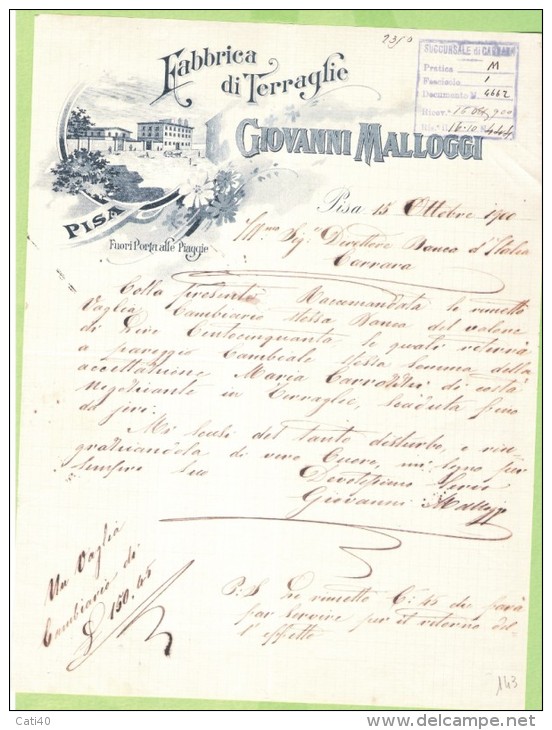 23/0
SUCCURSALE di CARRARA
Pratica M
Fascicolo 1
Documento N. 4662
Ricev. 16 Ott 900
16.10.
Fabbrica
di Terraglie
GIOVANNI MALLOGGI
PISA
Fuori Porta alle Piagge
Pisa 15 Ottobre 1900
Ill.mo Sig.r Direttore Banca d'Italia
Carrara
Colla presente Racomandata le rimetto
Vaglia Cambiario stessa Banca del valore
di Lire Centocinquanta le quali riterrà
a pareggio Cambiale stessa somma della
accettazione Maria di costà
Negoziante in Terraglie, scaduta fino
dd
Mi scusi del tanto disturbo, e rin-
graziandola di vero Cuore, mi segno per
sempre suo
Devotissimo Servo
Giovanni Malloggi
Un Vaglia
Cambiario di
£ 150.45
P.S. Le rimetto C: 45 che farà
per servire per il ritorno del-
l'effetto
143
Cati40
www.delcampe.net